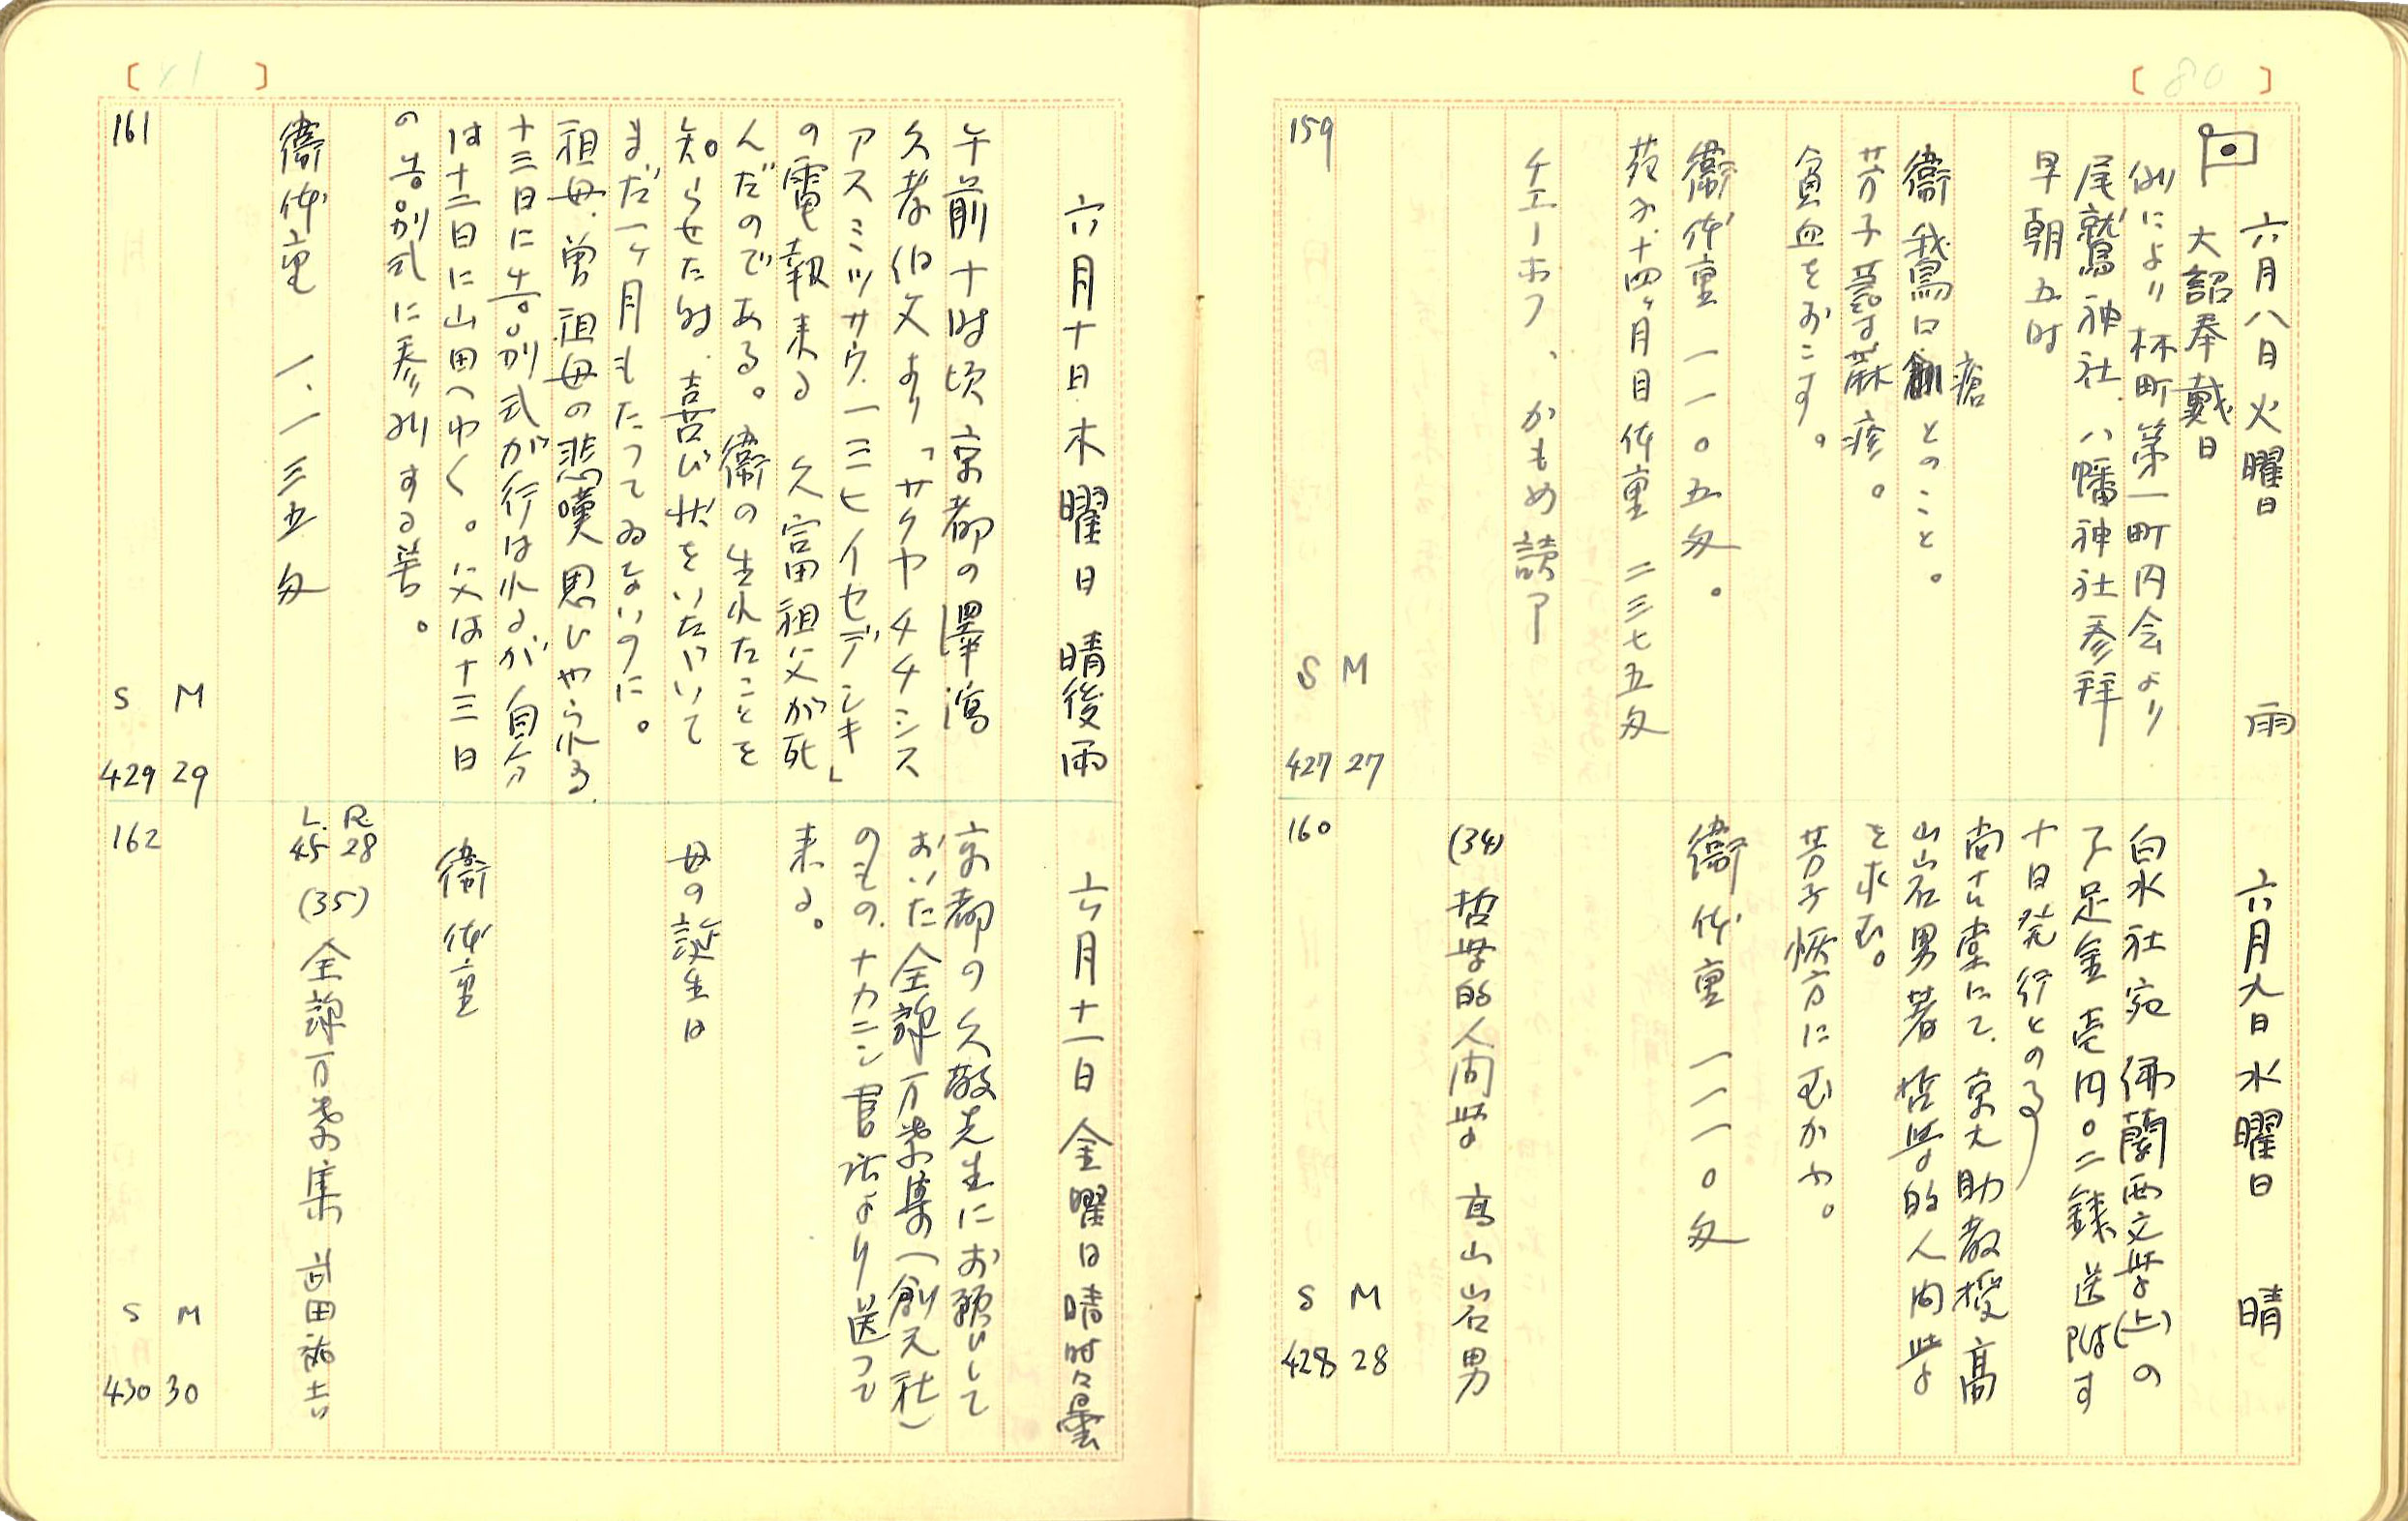 [80]
六月八日火曜日 雨
大詔奉戴日
例により林町第一町内会より
尾鷲神社、八幡神社参拝
早朝五時
衞 鵞口瘡とのこと。
芳子蕁麻疹。
貧血をおこす。
衞体重 一一〇五匁。
苑子十四ヶ月目体重 二三七五匁
チエーホフ、かもめ読了
159
S M
427 27
六月九日水曜日 晴
白水社宛 佛蘭西文学(上)の
不足金壱円〇二銭送附す
十日発行とのこと
尚古堂にて、京大助教授高
山岩男著 哲学的人間学
を求む。
芳子恢方にむかふ。
衞体重 一一一〇匁
(34) 哲学的人間学 高山岩男
160
S M
428 28
[81]
六月十日木曜日 晴後雨
午前十時頃京都の澤瀉
久孝伯父より「サクヤチチシス
アスミツサウ、一三ヒイセデシキ」
の電報来る 久富田祖父が死
んだのである。衞の生れたことを
知らせた時、喜び状をいたゞいて
まだ一ヶ月もたってゐないのに。
祖母、曽祖母の悲嘆思ひやらる
十三日に告別式が行はれるが自分
は十二日に山田へゆく。父は十三日
の告別式に参列する筈。
衞体重 一、一三五匁
161
S M
429 29
六月十一日金曜日晴時々曇
京都の久敬先生にお願ひして
おいた全譯万葉集(創元社)
のもの、ナカニシ書店より送って
来る。
母の誕生日
衞体重
R. 28
L. 45
(35) 全譯万葉集 武田祐吉
162
S M
430 30